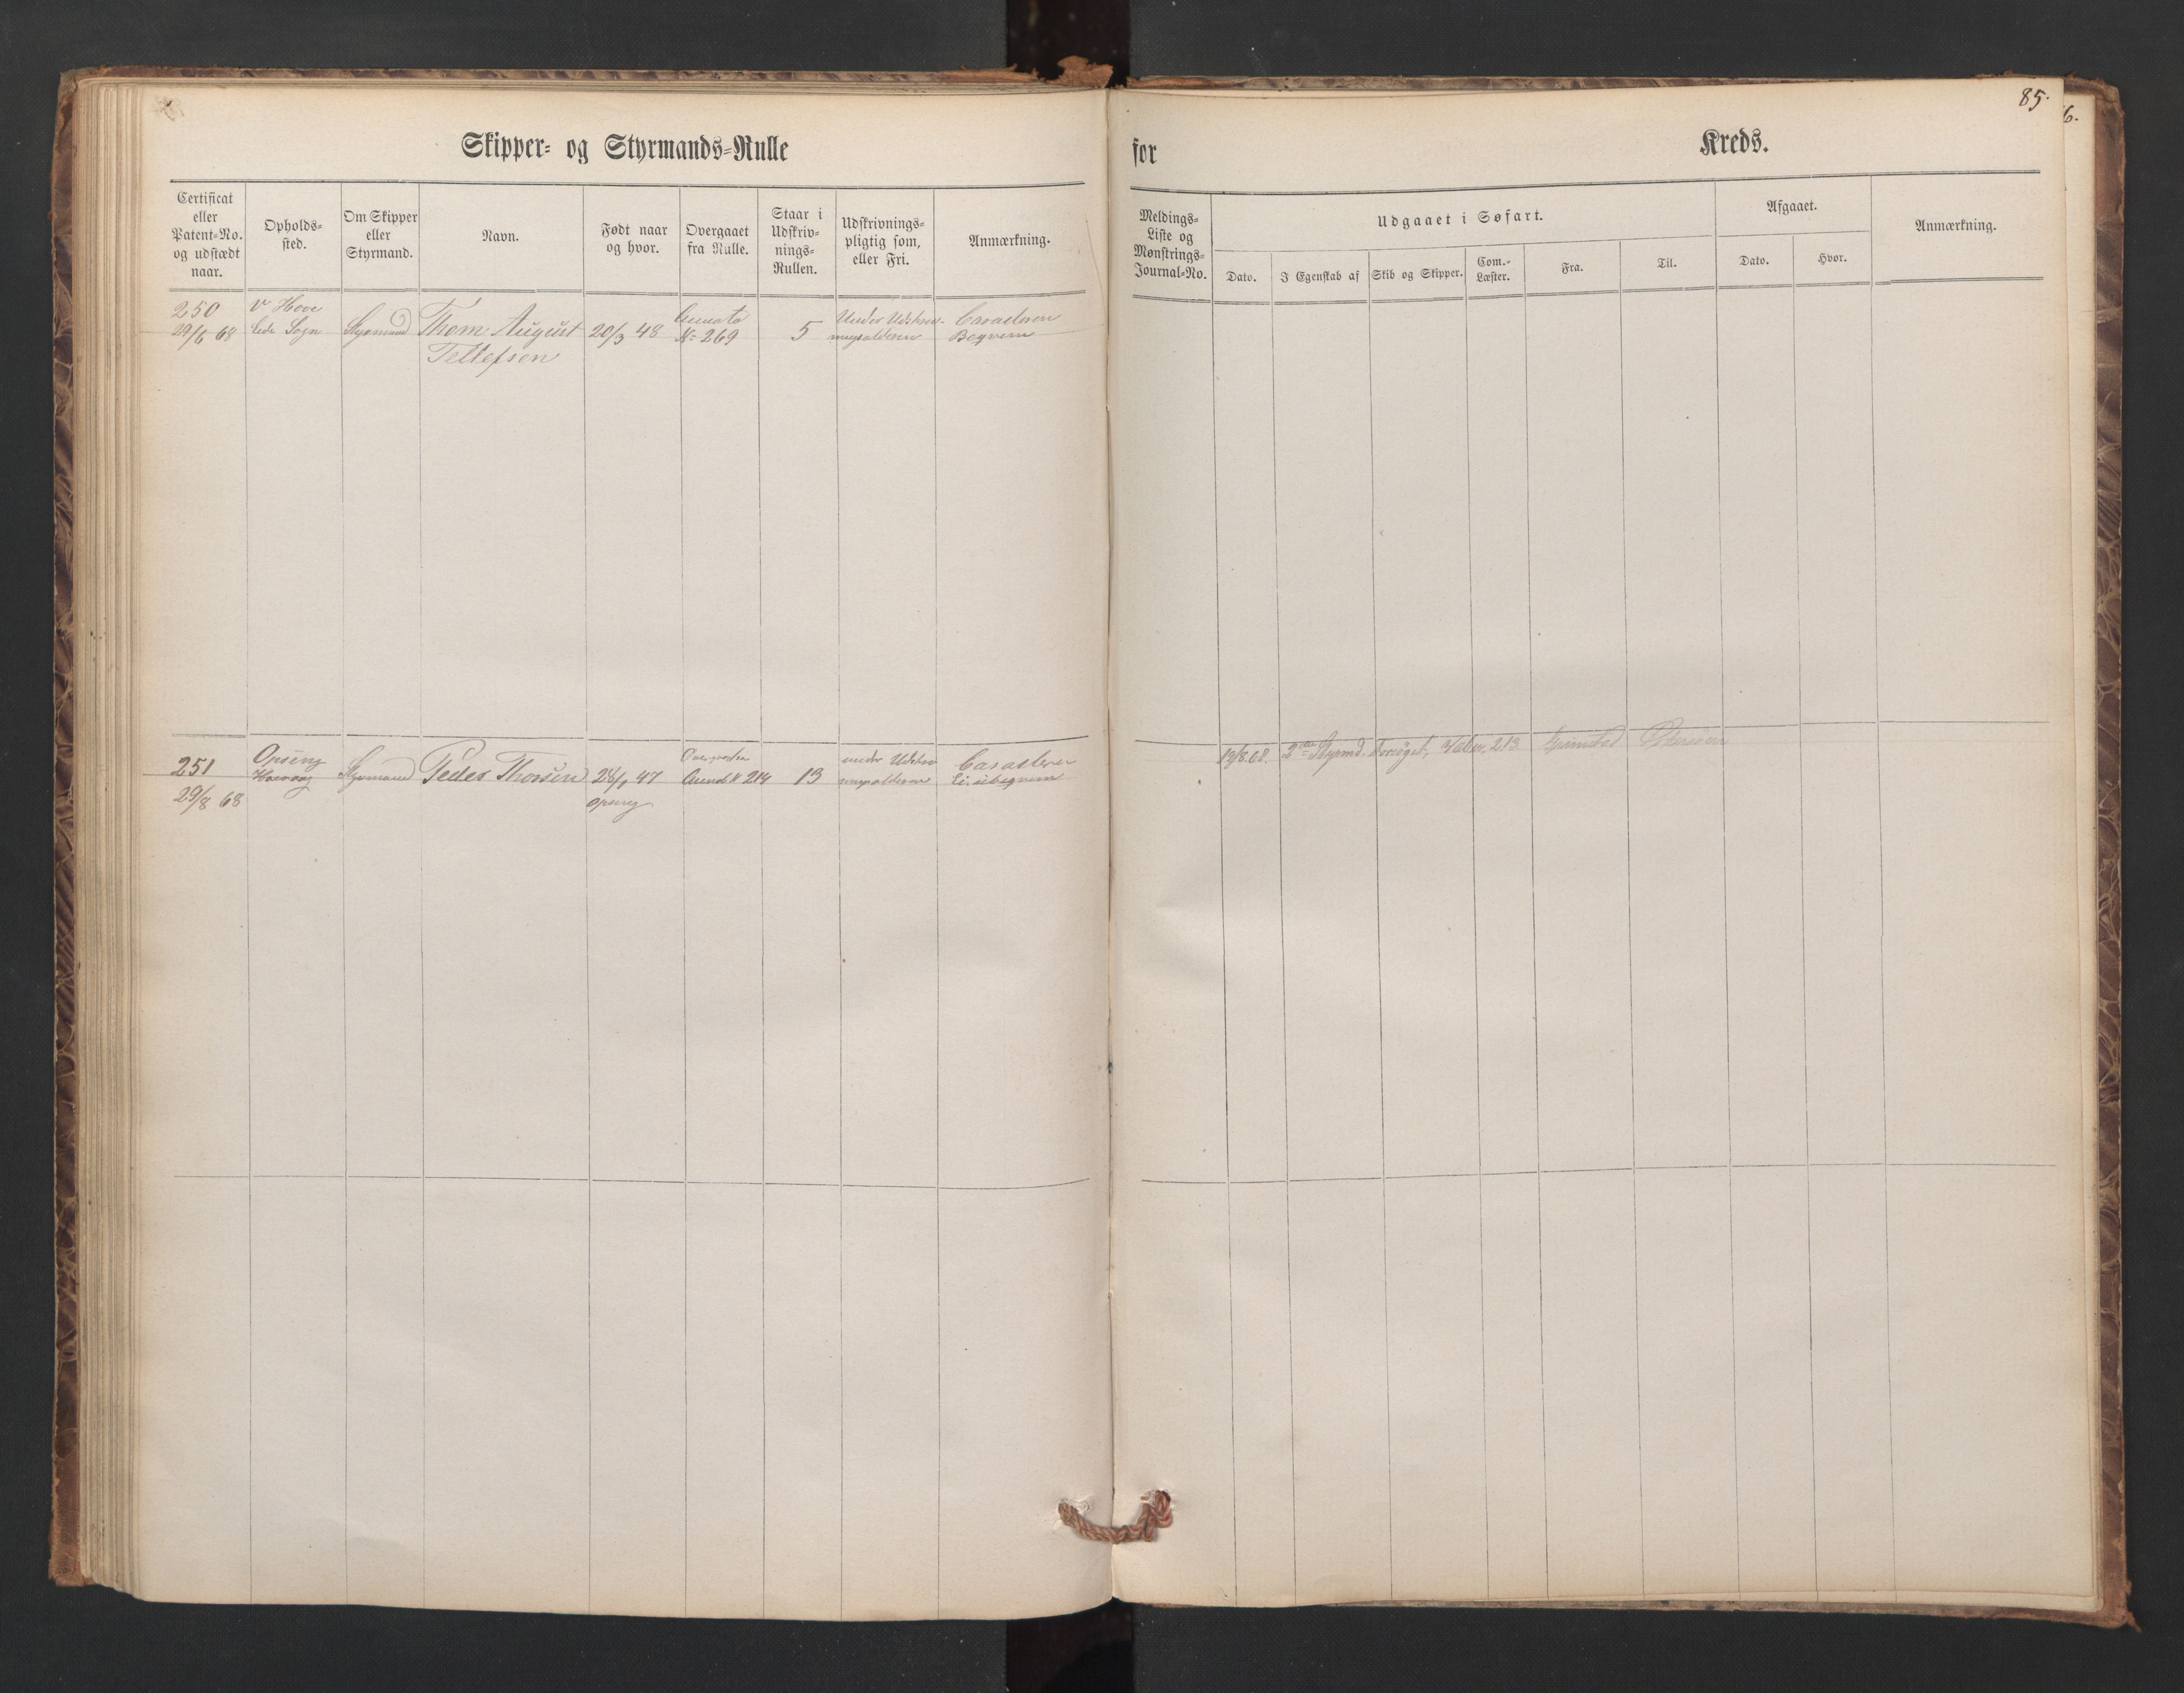 85.
6.
Skipper- og Styrmands-Rulle
for
Kreds.
Certificat
eller
Patent-No.
og udstædt
naar.
Opholds-
sted.
Om Skipper
eller
Styrmand.
Navn.
Født naar
og hvor.
Overgaaet
fra Rulle.
Staar i
Udskriv-
nings-
Rullen.
Udskrivnings-
pligtig som,
eller Fri.
Anmærkning.
Meldings-
Liste og
Mønstrings-
Journal-No.
Udgaaet i Søfart.
Dato.
I Egenskab af
Skib og Skipper.
Com.-
Læster.
Fra.
Til.
Afgaaet.
Dato.
Hvor.
Anmærkning.
250
29/6 68
Hove
Sogn
Styrmand
Thom August
Tellefsen
20/3 48
No 269
5
Under Udskriv-
ningsalderen
Bequem
251
29/8 68
Styrmand
Peder Thorsen
47
214
13
under Udskriv
ningsalderen
19/8.68.
2den Styrmd.
213.
Grimstad